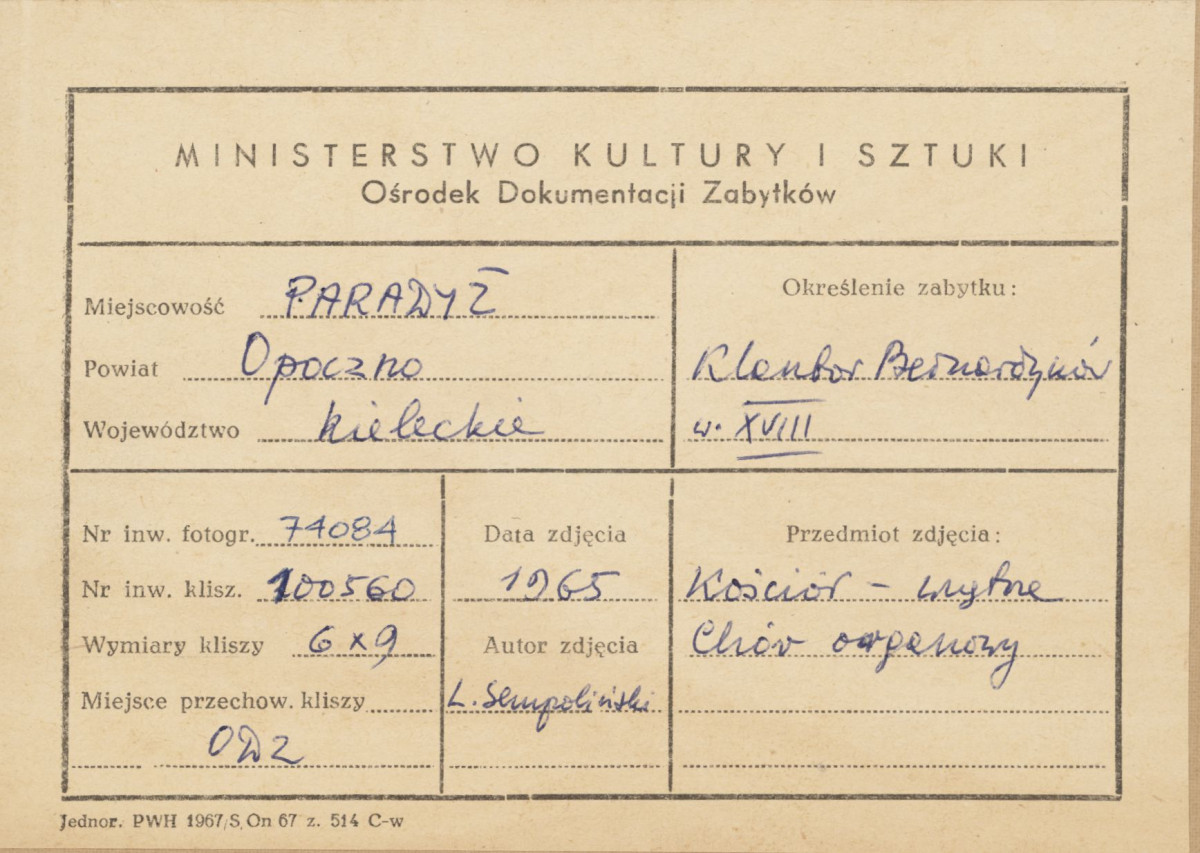 MINISTERSTWO KULTURY I SZTUKI
Ośrodek Dokumentacji Zabytków
Miejscowość PARADYŻ
Powiat Opoczno
Województwo kieleckie
Określenie zabytku:
Klasztor Bernardynów
w. XVIII
Nr inw. fotogr. 74084
Nr inw. klisz. 100560
Wymiary kliszy 6x9
Miejsce przechow. kliszy
ODZ
Data zdjęcia
1965
Autor zdjęcia
L. Sempoliński
Przedmiot zdjęcia:
Kościół – wnętrze
Chór organowy
Jednor. PWH 1967/S. On 67 z. 514 C-w